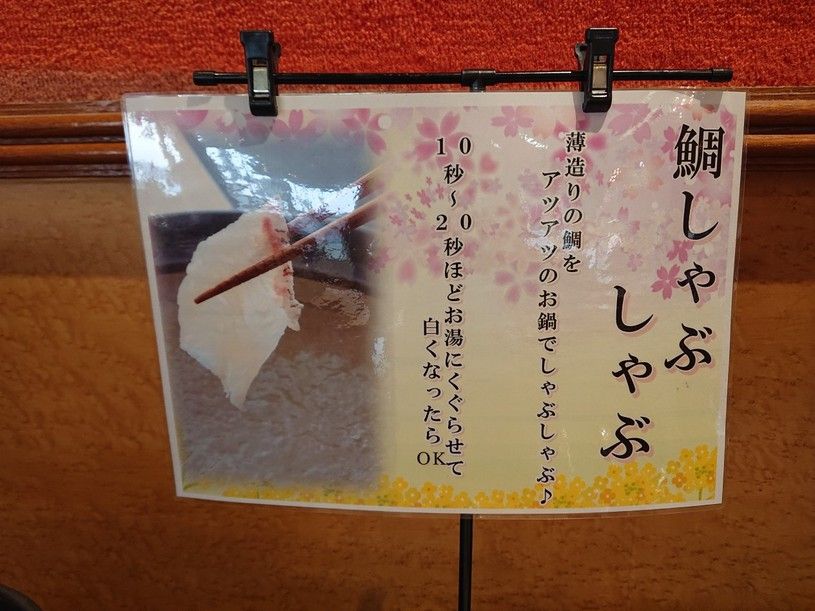 鯛しゃぶ
しゃぶ
薄造りの鯛を
アツアツのお鍋でしゃぶしゃぶ♪
10秒～20秒ほどお湯にくぐらせて
白くなったらOK